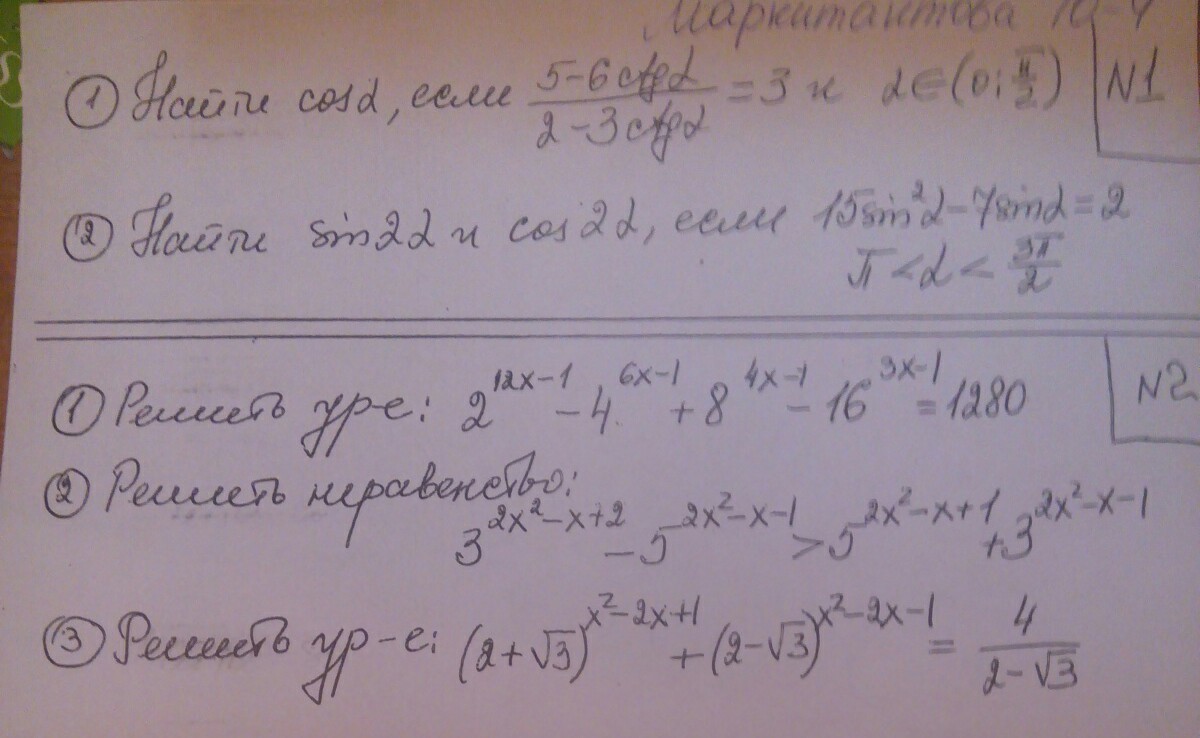 Маркитантова 10-4
① Найти cosα, если (5-6ctgα)/(2-3ctgα) = 3 и α∈(0; π/2) N1
② Найти sin2α и cos2α, если 15sin²α-7sinα=2
π<α<3π/2
① Решить ур-е: 2^(12x-1) - 4^(6x-1) + 8^(4x-1) - 16^(3x-1) = 1280 N2
② Решить неравенство:
3^(2x²-x+2) - 5^(2x²-x-1) > 5^(2x²-x+1) + 3^(2x²-x-1)
③ Решить ур-е: (2+√3)^(x²-2x+1) + (2-√3)^(x²-2x-1) = 4/(2-√3)